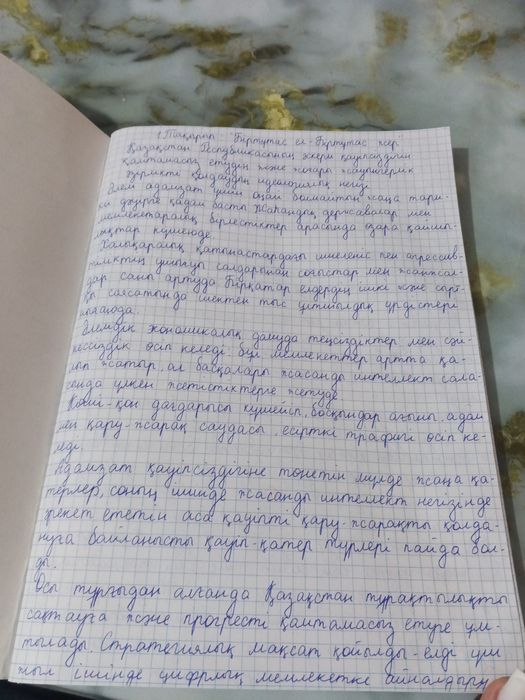 1 Тақырып "Біртұтас ел-Біртұтас жер
Қазақстан Республикасының әскери қауіпсіздігін
қамтамасыз етудің және жоғары жауынгерлік
әзірлікті қолдаудың идеологиялық негізі
Әлем адамзат үшін оңай болмайтын жаңа тари-
хи дәуірге қадам басты Жаһандық державалар мен
мемлекетаралық бірлестіктер арасында өзара қайшы-
лықтар күшеюде
Халықаралық қатынастардағы шиеленіс пен агрессив-
тіліктің ушығуы салдарынан соғыстар мен жанжал-
дар саны артуда Бірқатар елдердің ішкі және сырт-
қы саясатында шектен тыс ұлтшылдық үрдістері
Әлемдік экономикалық дамуда теңсіздіктер мен сәй-
кессіздік өсіп келеді бұл мемлекеттер артта қа-
лып жатыр, ал басқалары жасанды интеллект сала-
сында үлкен жетістіктерге жетуде
Көші-қон дағдарысы күшейіп, босқындар ағыны, адам
мен қару-жарақ саудасы, есірткі трафигі өсіп ке-
леді.
Адамзат қауіпсіздігіне төнетін мүлде жаңа қа-
терлер, соның ішінде жасанды интеллект негізінде
әрекет ететін аса қауіпті қару-жарақты қолда-
нуға байланысты қауіп-қатер түрлері пайда бол-
ды.
Осы тұрғыдан алғанда Қазақстан тұрақтылықты
сақтауға және прогресті қамтамасыз етуге ұм-
тылады. Стратегиялық мақсат қойылды-елді үш
жыл ішінде цифрлық мемлекетке айналдыру